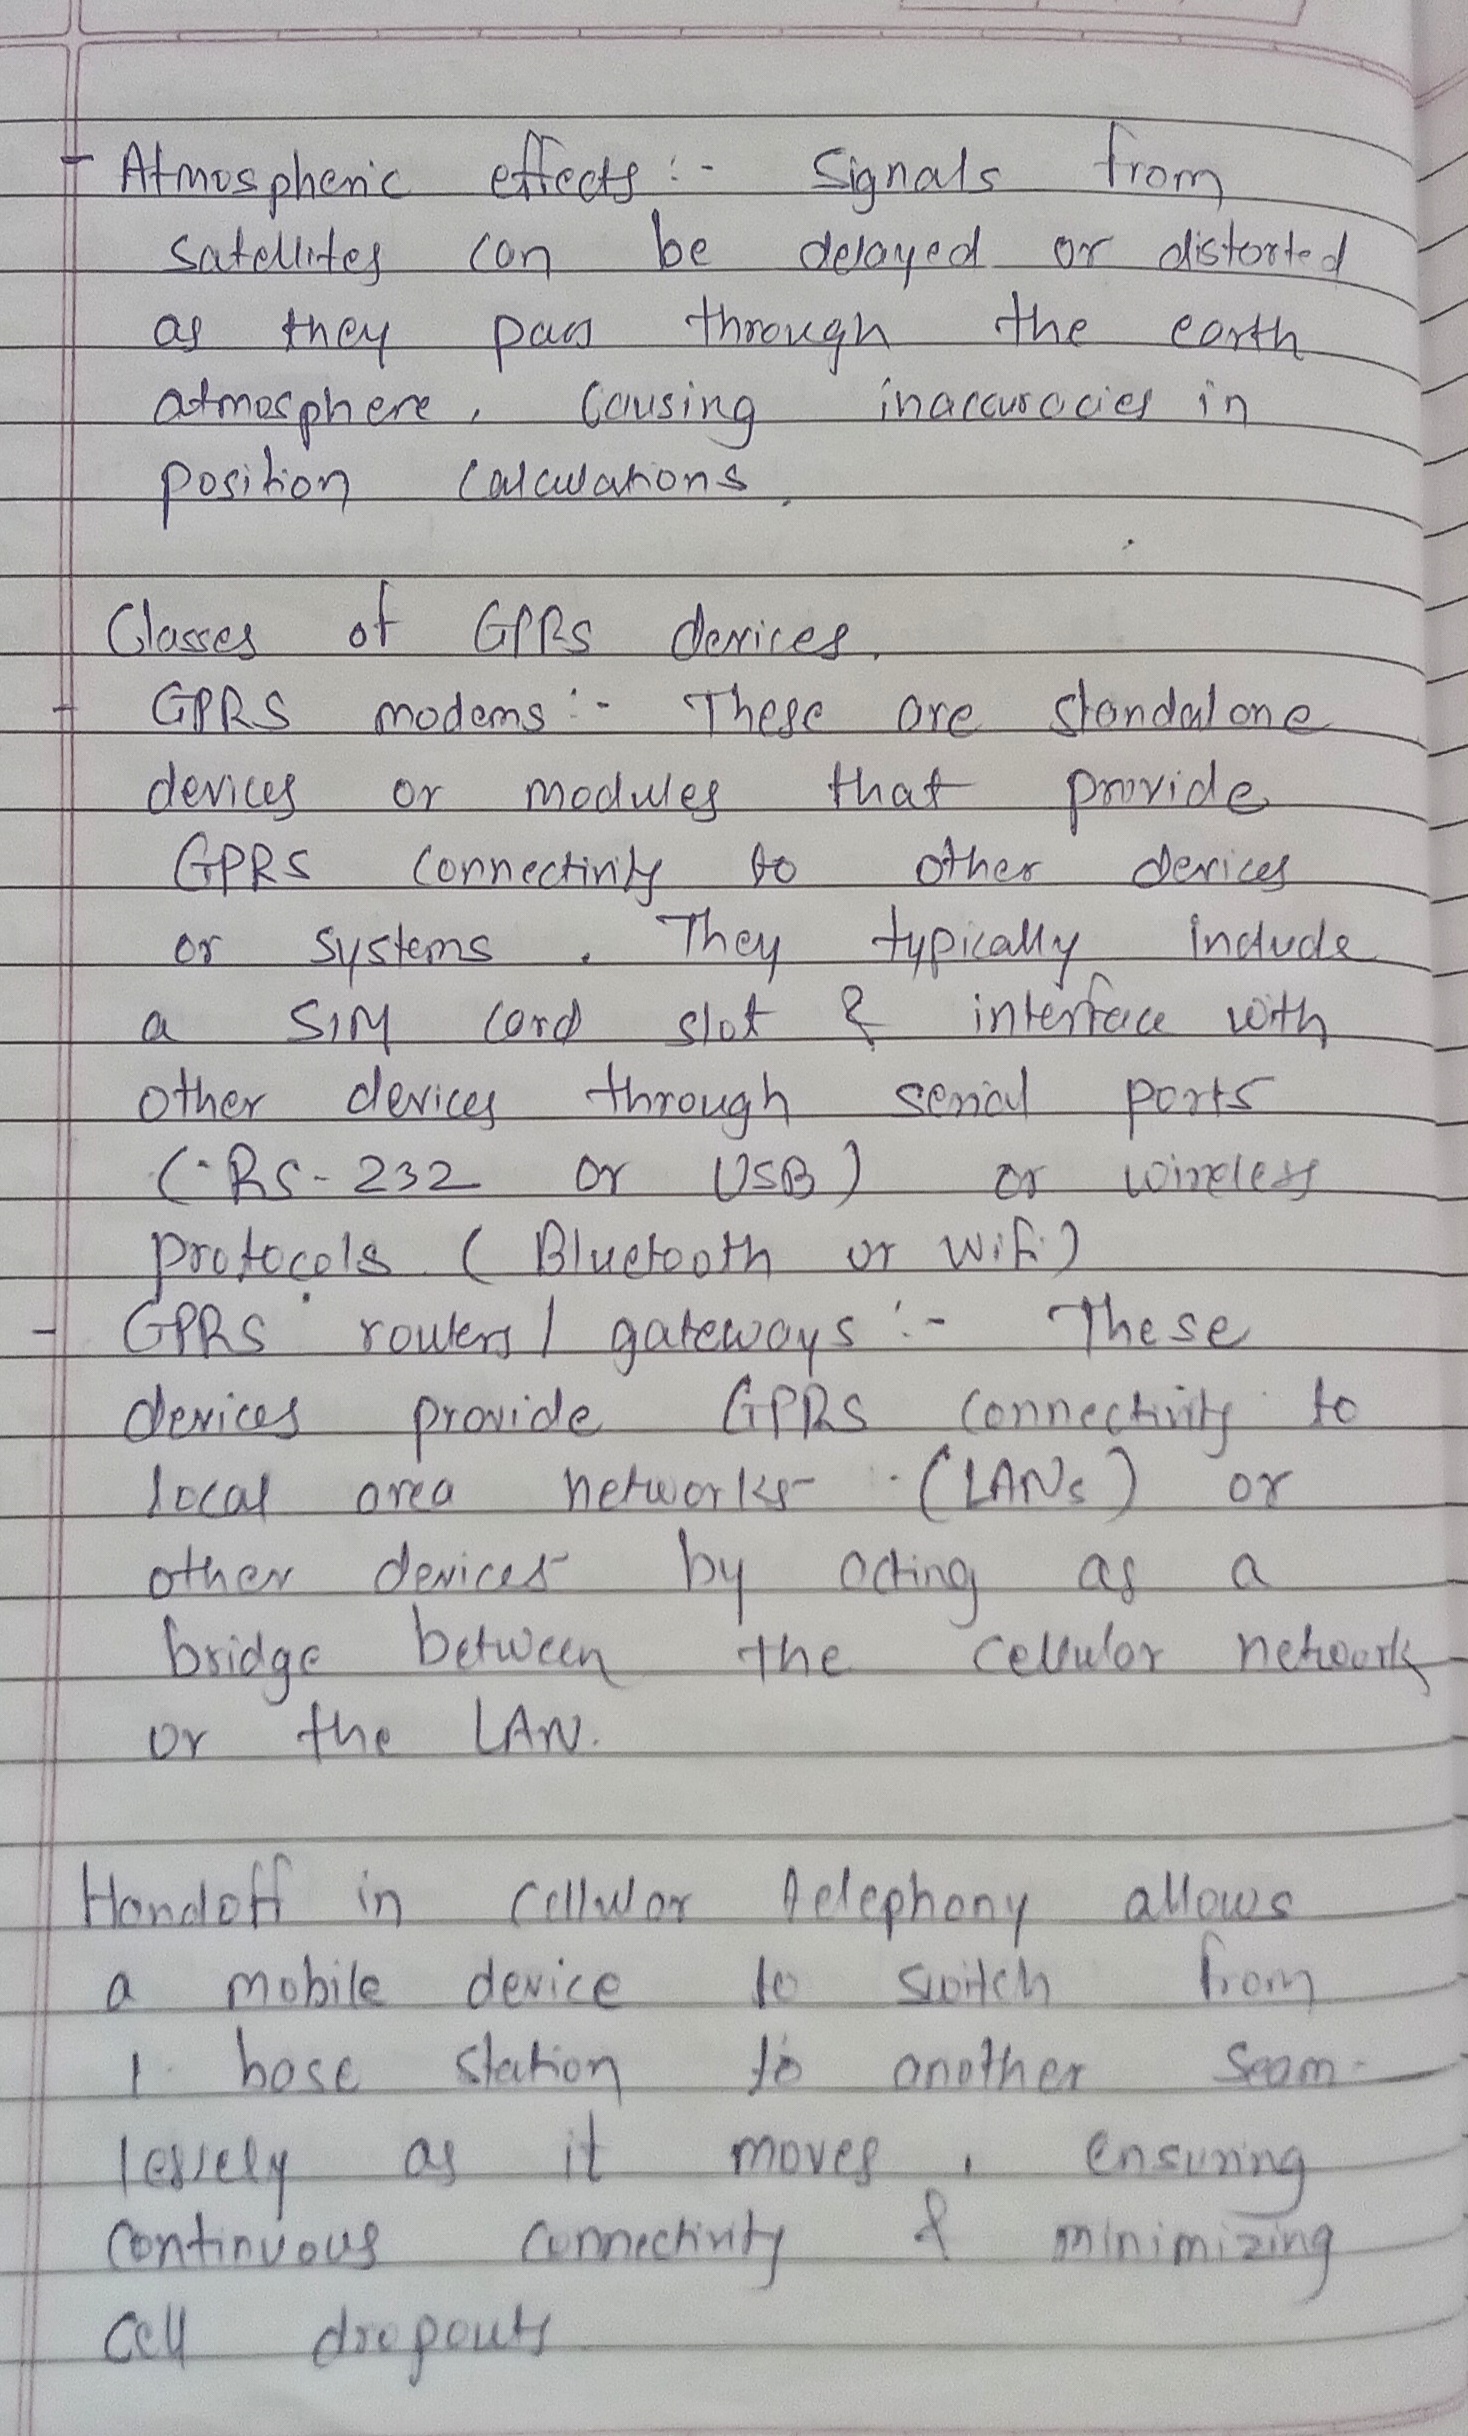 - Atmospheric effects :- Signals from
satellites can be delayed or distorted
as they pass through the earth
atmosphere, causing inaccuracies in
position calculations.
Classes of GPRS devices.
- GPRS modems :- These are standalone
devices or modules that provide
GPRS connectivity to other devices
or systems. They typically include
a SIM card slot & interface with
other devices through serial ports
(RS-232 or USB) or wireless
protocols (Bluetooth or Wifi)
- GPRS routers / gateways :- These
devices provide GPRS connectivity to
local area networks (LANs) or
other devices by acting as a
bridge between the cellular network
or the LAN.
Handoff in cellular telephony allows
a mobile device to switch from
1 base station to another seam-
lessely as it moves, ensuring
continuous connectivity & minimizing
cell dropouts